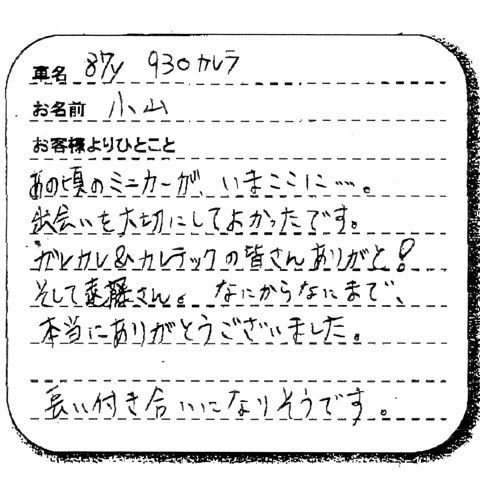 車名 87y 930カレラ
お名前 小山
お客様よりひとこと
あの頃のミニカーが、いまここに…。
出会いを大切にしてよかったです。
ガレカレ&カレテックの皆さんありがと!
そして遠藤さん。なにからなにまで、
本当にありがとうございました。
長い付き合いになりそうです。